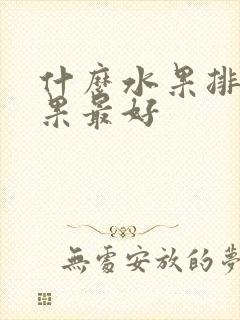 什麼水果排
果最好
無處安放的夢